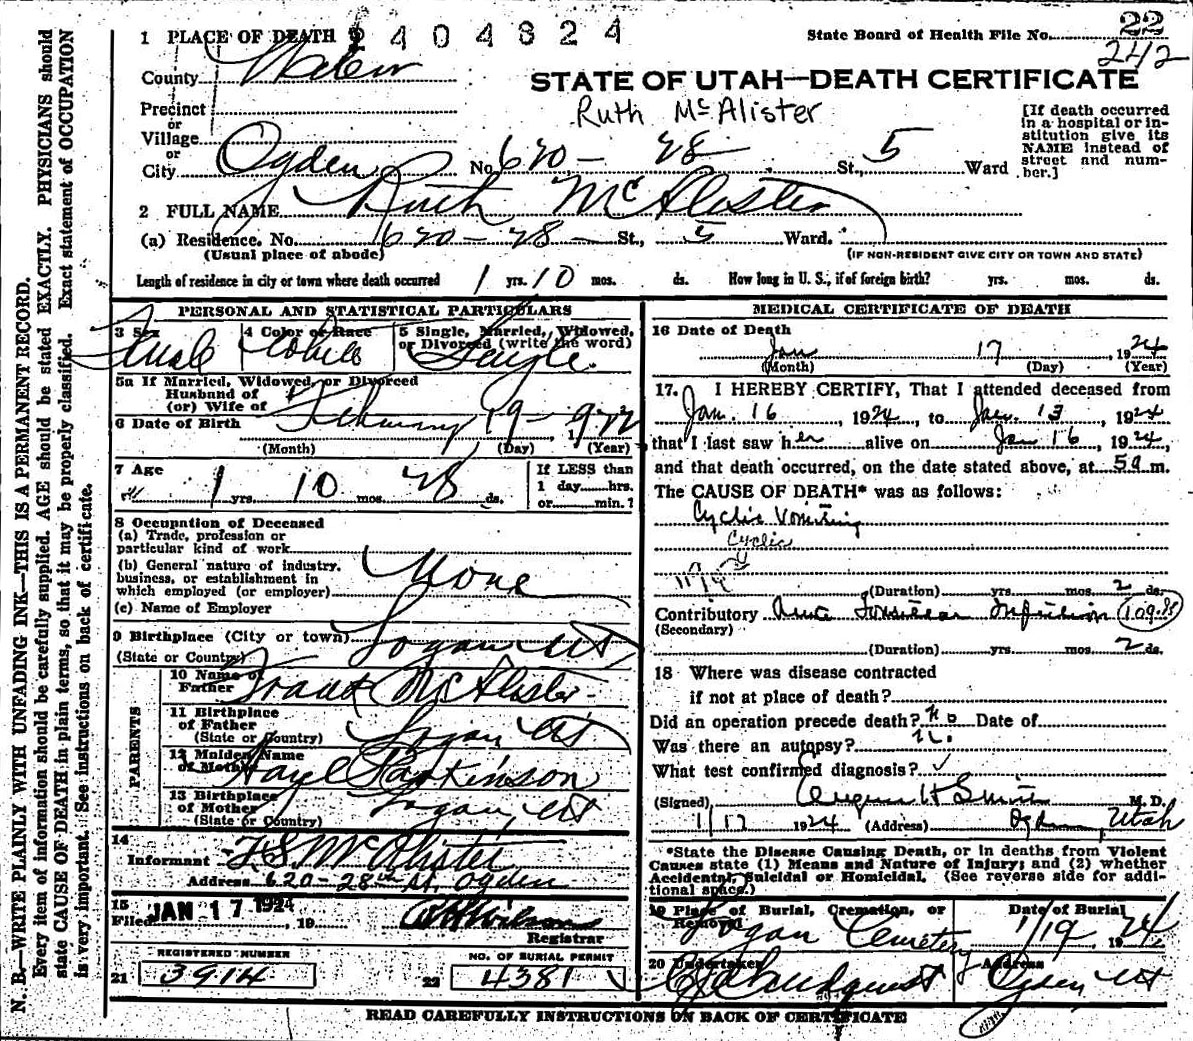 2404324
State Board of Health File No. 22
242
1 PLACE OF DEATH
County Weber
STATE OF UTAH—DEATH CERTIFICATE
Ruth McAlister
Precinct
or
Village
or
City Ogden No. 620 - 28 St., 5 Ward
[If death occurred
in a hospital or in-
stitution give its
NAME instead of
street and num-
ber.]
2 FULL NAME Ruth McAlister
(a) Residence. No. 620 - 28 St., 5 Ward.
(Usual place of abode) (IF NON-RESIDENT GIVE CITY OR TOWN AND STATE)
Length of residence in city or town where death occurred 1 yrs. 10 mos. ds. How long in U. S., if of foreign birth? yrs. mos. ds.
PERSONAL AND STATISTICAL PARTICULARS
3 Sex Female
4 Color or Race White
5 Single, Married, Widowed,
or Divorced (write the word) Single.
5a If Married, Widowed, or Divorced
Husband of
(or) Wife of
6 Date of Birth February 19 - 1922
(Month) (Day) (Year)
7 Age 1 yrs. 10 mos. 28 ds.
If LESS than
1 day hrs.
or min.?
8 Occupation of Deceased
(a) Trade, profession or
particular kind of work
(b) General nature of industry,
business, or establishment in
which employed (or employer) None
(c) Name of Employer
9 Birthplace (City or town) Logan Ut
(State or Country)
PARENTS
10 Name of
Father Frank McAlister
11 Birthplace
of Father Logan Ut
(State or Country)
12 Maiden Name
of Mother Hazel Parkinson
13 Birthplace
of Mother Logan Ut
(State or Country)
14
Informant F S McAlister
Address 620 - 28th St. Ogden
15
Filed JAN 17 1924, 19
Registrar
REGISTERED NUMBER
21 3914
NO. OF BURIAL PERMIT
22 4381
MEDICAL CERTIFICATE OF DEATH
16 Date of Death
Jan 17, 1924
(Month) (Day) (Year)
17. I HEREBY CERTIFY, That I attended deceased from
Jan. 16, 1924, to Jan. 13, 1924
that I last saw her alive on Jan 16, 1924,
and that death occurred, on the date stated above, at 5a m.
The CAUSE OF DEATH* was as follows:
Cyclic Vomiting
Cyclic
(Duration) yrs. mos. 2 ds.
Contributory Acute Tonsillar Infection 109.85
(Secondary)
(Duration) yrs. mos. 2 ds.
18 Where was disease contracted
if not at place of death?
Did an operation precede death? No Date of
Was there an autopsy? No
What test confirmed diagnosis?
(Signed) Eugene H Smith M. D.
1/17 1924 (Address) Ogden, Utah
*State the Disease Causing Death, or in deaths from Violent
Causes state (1) Means and Nature of Injury; and (2) whether
Accidental, Suicidal or Homicidal. (See reverse side for addi-
tional space.)
19 Place of Burial, Cremation, or
Removal Logan Cemetery
Date of Burial
1/19 1924
20 Undertaker Lindquist
Address Ogden Ut
READ CAREFULLY INSTRUCTIONS ON BACK OF CERTIFICATE
N. B.—WRITE PLAINLY WITH UNFADING INK—THIS IS A PERMANENT RECORD.
Every item of information should be carefully supplied. AGE should be stated EXACTLY. PHYSICIANS should
state CAUSE OF DEATH in plain terms, so that it may be properly classified. Exact statement of OCCUPATION
is very important. See instructions on back of certificate.